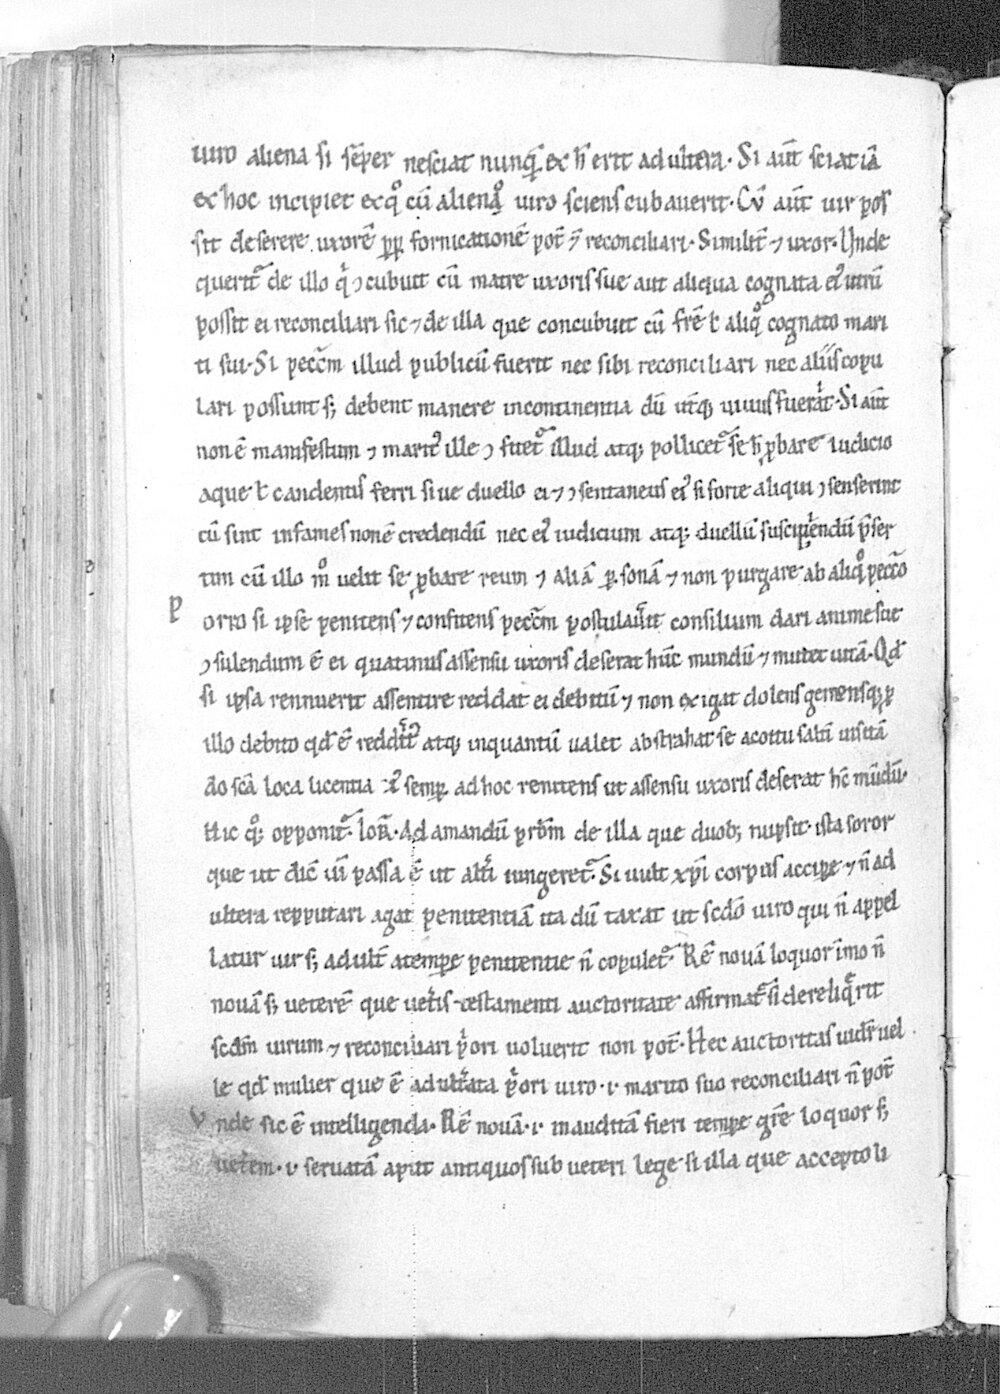 uiro aliena si sēper nesciat nunq̄ ex h̄ erit adultera. Si aūt sciat iā
ex hoc incipiet ex qͦ cū alienͦ uiro sciens cubauerit. Cū aūt uir pos
sit deserere uxorē ꝓp̄ fornicationē pōt ⁊ reconciliari. Similit̄ ⁊ uxor. Unde
querit᷑ de illo qⁱ ꝯcubuit cū matre uxoris sue aut aliqua cognata eiꝰ utrū
possit ei reconciliari sic ⁊ de illa que concubuit cū fr̄e ł aliqͦ cognato mari
ti sui. Si pecc̄m illud publicū fuerit nec sibi reconciliari nec aliis copu
lari possunt sꝫ debent manere incontinentia dū utq̄ uiuus fuerit. Si aūt
non ē manifestum ⁊ maritꝰ ille ꝯfitet᷑ illud atqꝫ pollicet᷑ se h̄ ꝓbare iudicio
aque ł candentis ferri siue duello ei ⁊ ꝯsentaneus eiꝰ si forte aliqui ꝯsenserint
cū sint infames non ē credendū nec eiꝰ iudicium atqꝫ duellū suscipiendū p̄ser
tim cū illo mͦ uelit se ꝓbare reum ⁊ aliā ꝑsonā ⁊ non purgare ab aliqͦ pecc̄o
P orro si ipse penitens ⁊ confitens pecc̄m postulauerit consilium dari anime sue
ꝯsulendum ē ei quatinus assensu uxoris deserat hūc mundū ⁊ mutet uitā. Qd̄
si ipsa rennuerit assentire reddat ei debitū ⁊ non exigat dolens gemensqꝫ ꝓ
illo debito qd̄ ē redditurꝰ atqꝫ inquantū ualet abstrahat se a coitu saltī uisitā
do sc̄a loca licentia eiꝰ semꝑ ad hoc renitens ut assensu uxoris deserat hc̄ mūdū.
Hic qͦꝫ opponit᷑. Ad amandū pro de illa que duobꝫ nupsit. ista soror
que ut dic̄ uim passa ē ut alt̄i iungeret᷑. Si uult xp̄i corpus accipe ⁊ n̄ ad
ultera repputari agat penitentiā ita dū taxat ut sc̄do uiro qui n̄ appel
latur uir sꝫ adult̄ a tempe penitentie n̄ copulet᷑. Rē nouā loquor imo n̄
nouā sꝫ ueterē que uet̄is testamenti auctoritate affirmat᷑ si dereliqͥerit
sc̄dm uirum ⁊ reconciliari pⁱori uoluerit non pōt. Hec auctoritas uidet̄ uel
le qd̄ mulier que ē adult̄ata pⁱori uiro .i. marito suo reconciliari n̄ pōt
V nde sic ē intelligenda. Rē nouā .i. inauditā fieri tempe gr̄e loquor sꝫ
uet̄em .i. seruatā aput antiquos sub ueteri lege si illa que accepto li